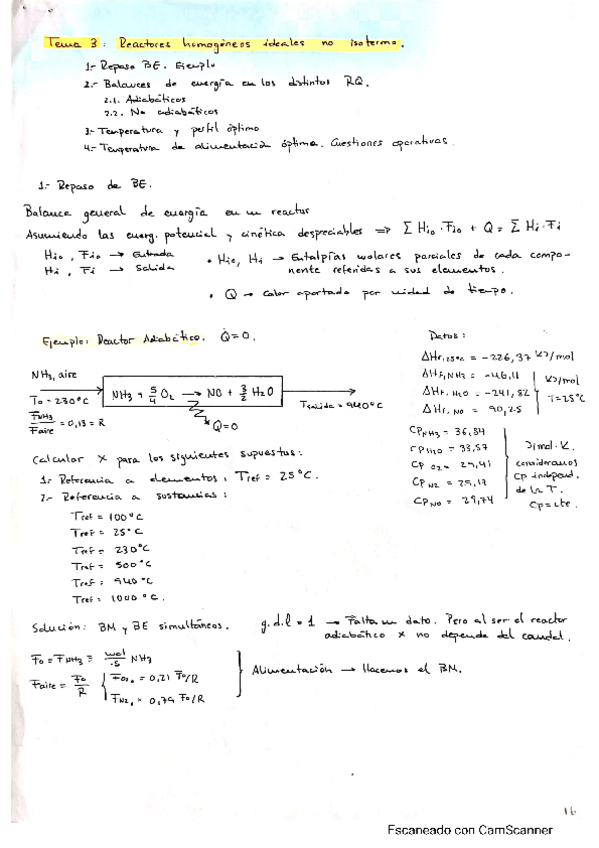 Tema 3: Reactores homogéneos ideales no isotermo.
1.- Repaso BE. Ejemplo
2.- Balances de energía en los distintos RQ.
2.1. Adiabáticos
2.2. No adiabáticos
3.- Temperatura y perfil óptimo
4.- Temperatura de alimentación óptima. Cuestiones operativas.
1.- Repaso de BE.
Balance general de energía en un reactor
Asumiendo las energ. potencial y cinética despreciables => ∑ Hio · Fio + Q = ∑ Hi · Fi
Hio, Fio → Entrada
Hi, Fi → Salida
• Hio, Hi → Entalpías molares parciales de cada compo-
nente referidas a sus elementos.
• Q → calor aportado por unidad de tiempo.
Ejemplo: Reactor Adiabático. Q̇=0.
NH3, aire
To = 230°C
FNH3/Faire = 0,13 = R
NH3 + 5/4 O2 → NO + 3/2 H2O
Q=0
Tsalida = 940°C
Datos:
ΔHr,25°C = -226,37 KJ/mol
ΔHf,NH3 = -46,11
ΔHf,H2O = -241,82
ΔHf,NO = 90,25
KJ/mol
T=25°C
CPNH3 = 36,84
CPH2O = 33,57
CP O2 = 29,41
CP N2 = 29,17
CPNO = 29,74
J/mol·K.
consideramos
Cp independ.
de la T.
Cp=cte.
Calcular X para los siguientes supuestos:
1.- Referencia a elementos, Tref = 25°C.
2.- Referencia a sustancias:
Tref = 100°C
Tref = 25°C
Tref = 230°C
Tref = 500°C
Tref = 940°C
Tref = 1000°C.
Solución: BM y BE simultáneos.
g.d.l = 1 → Falta un dato. Pero al ser el reactor
adiabático X no depende del caudal.
Fo = FNH3 = mol/s NH3
Faire = Fo/R
FO2o = 0,21 Fo/R
FN2o = 0,79 Fo/R
Alimentación → Hacemos el BM.
16
Escaneado con CamScanner